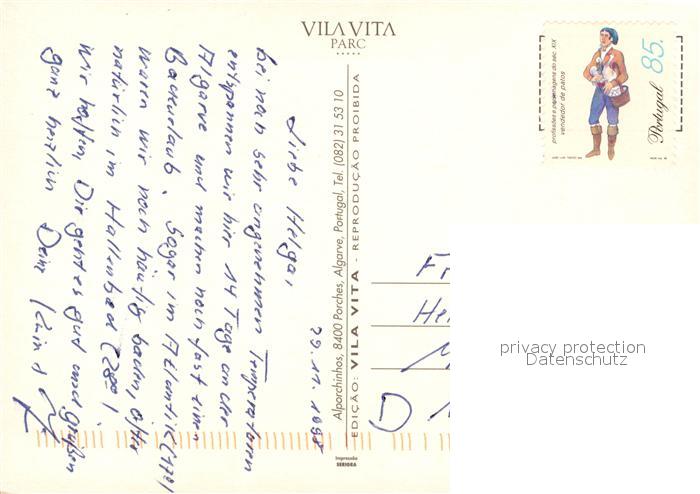 VILA VITA
PARC
*****
29.11.1995
Liebe Helga,
bei noch sehr angenehmen Temperaturen
entspannen wir hier 14 Tage an der
Algarve und machen noch fast einen
Badeurlaub. Sogar im Atlantic (17°)
waren wir noch häufig baden, öfter
natürlich im Hallenbad (28°)!
Wir hoffen, Dir geht es gut und grüßen
ganz herzlich Deine
Alporchinhos, 8400 Porches, Algarve, Portugal, Tel. (082) 31 53 10
EDIÇÃO: VILA VITA - REPRODUÇÃO PROIBIDA
profissões e personagens do séc. XIX
vendedor de patos
85.
Portugal
Fr
He
D
privacy protection
Datenschutz
Impressão
SERIGRA